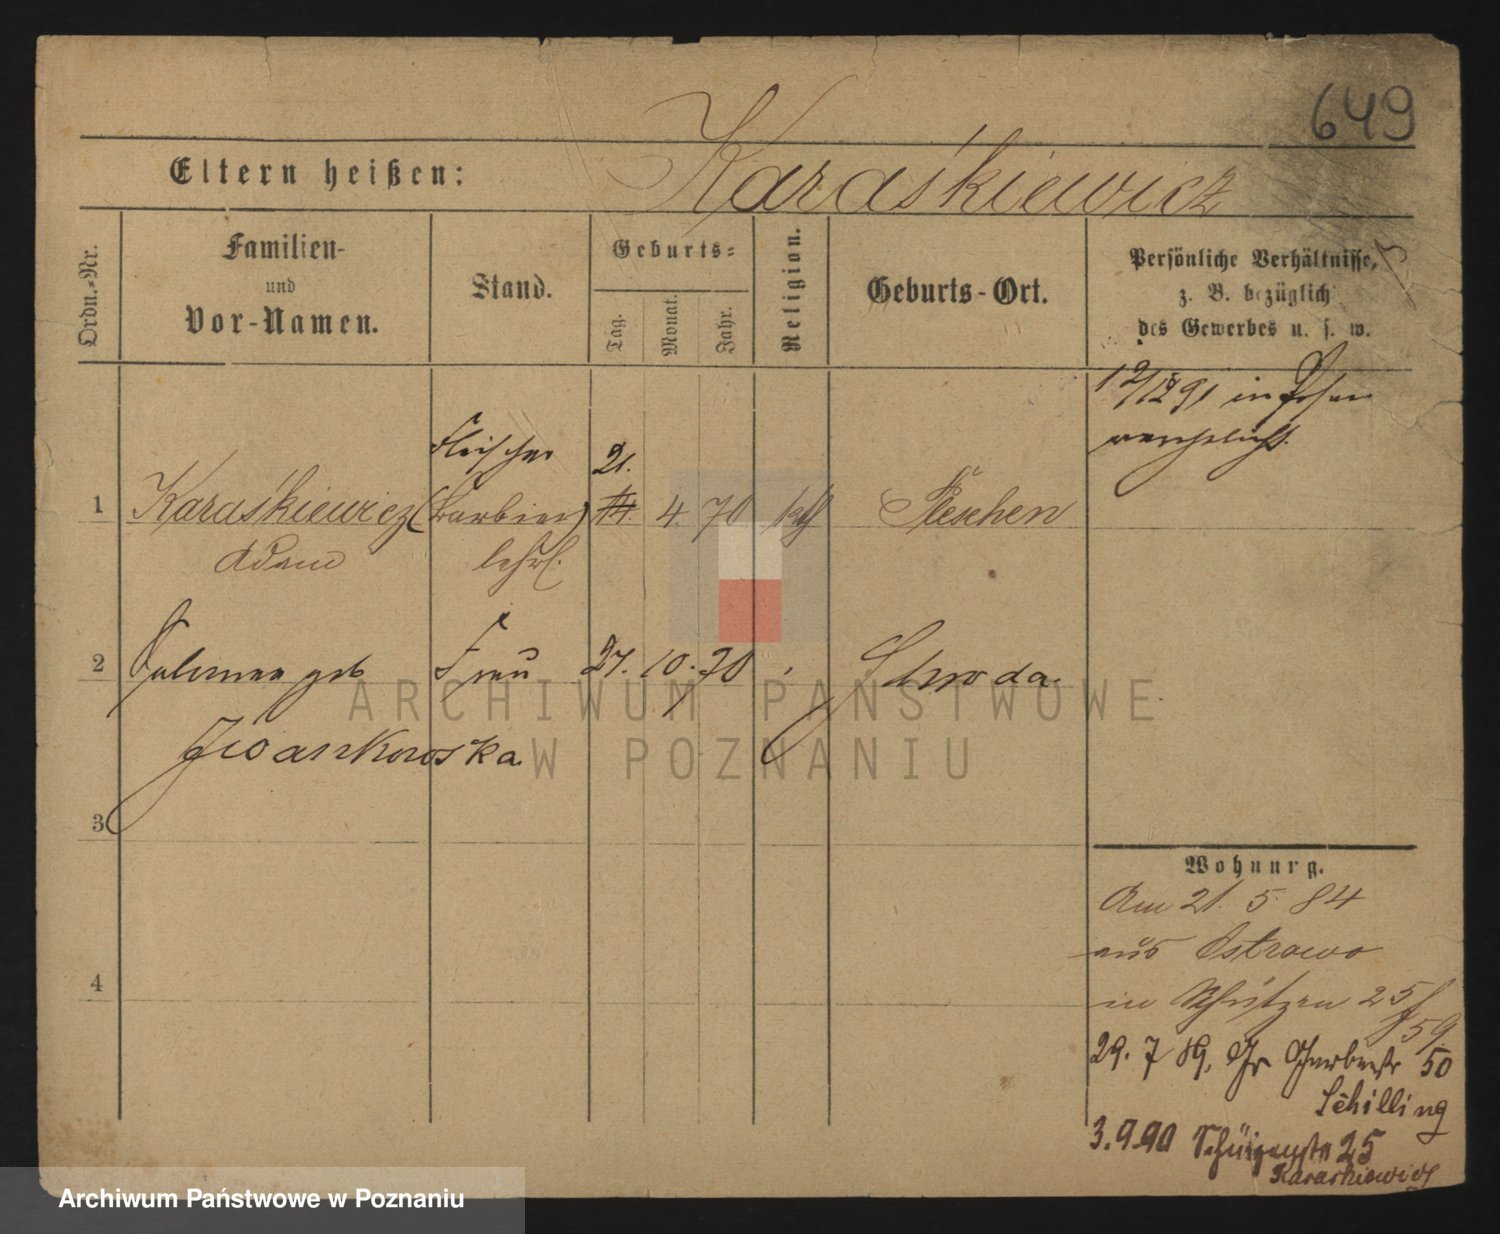 649
Eltern heißen: Karaśkiewicz
Ordn.-Nr.
Familien-
und
Vor-Namen.
Stand.
Geburts-
Tag.
Monat.
Jahr.
Religion.
Geburts-Ort.
Persönliche Verhältnisse,
z. B. bezüglich
des Gewerbes u. s. w.
12/12 91 in Posen
verehelicht.
Fleischer
21.
1 Karaśkiewicz (Barbier) 14. 4. 70 kth Pleschen
Adam lehrl.
2 geb Frau 27. 10. 70 Schroda.
Iwankowska.
3
Wohnung.
Am 21. 5. 84
aus Ostrowo
4
in Schützen 25/
59.
29. 7 89. Gr Gerberstr 50
Schilling
3.9.90 Schützenstr 25
Karaskiewicz
ARCHIWUM PAŃSTWOWE
W POZNANIU
Archiwum Państwowe w Poznaniu